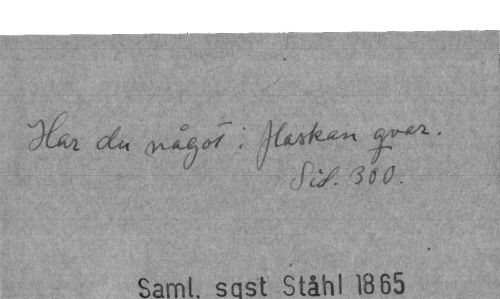 Har du något i flaskan qvar.
Sid. 300.
Saml. sgst Ståhl 1865